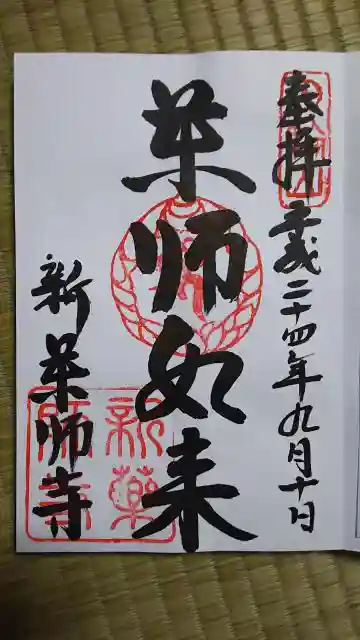 奉拝
平成二十四年九月十日
薬師如来
新薬師寺
新薬
師寺